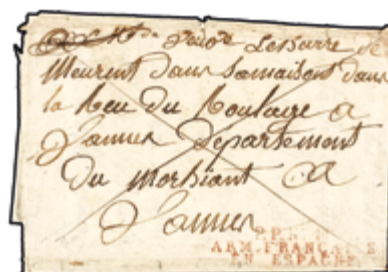 A Mr. Isidore Lesserre de
Meurent dans Samaisont dans
la Reu du Roulage a
Vannes Departement
Du Morbiant A
Vannes
ARM. FRANCAISE
EN ESPAGNE